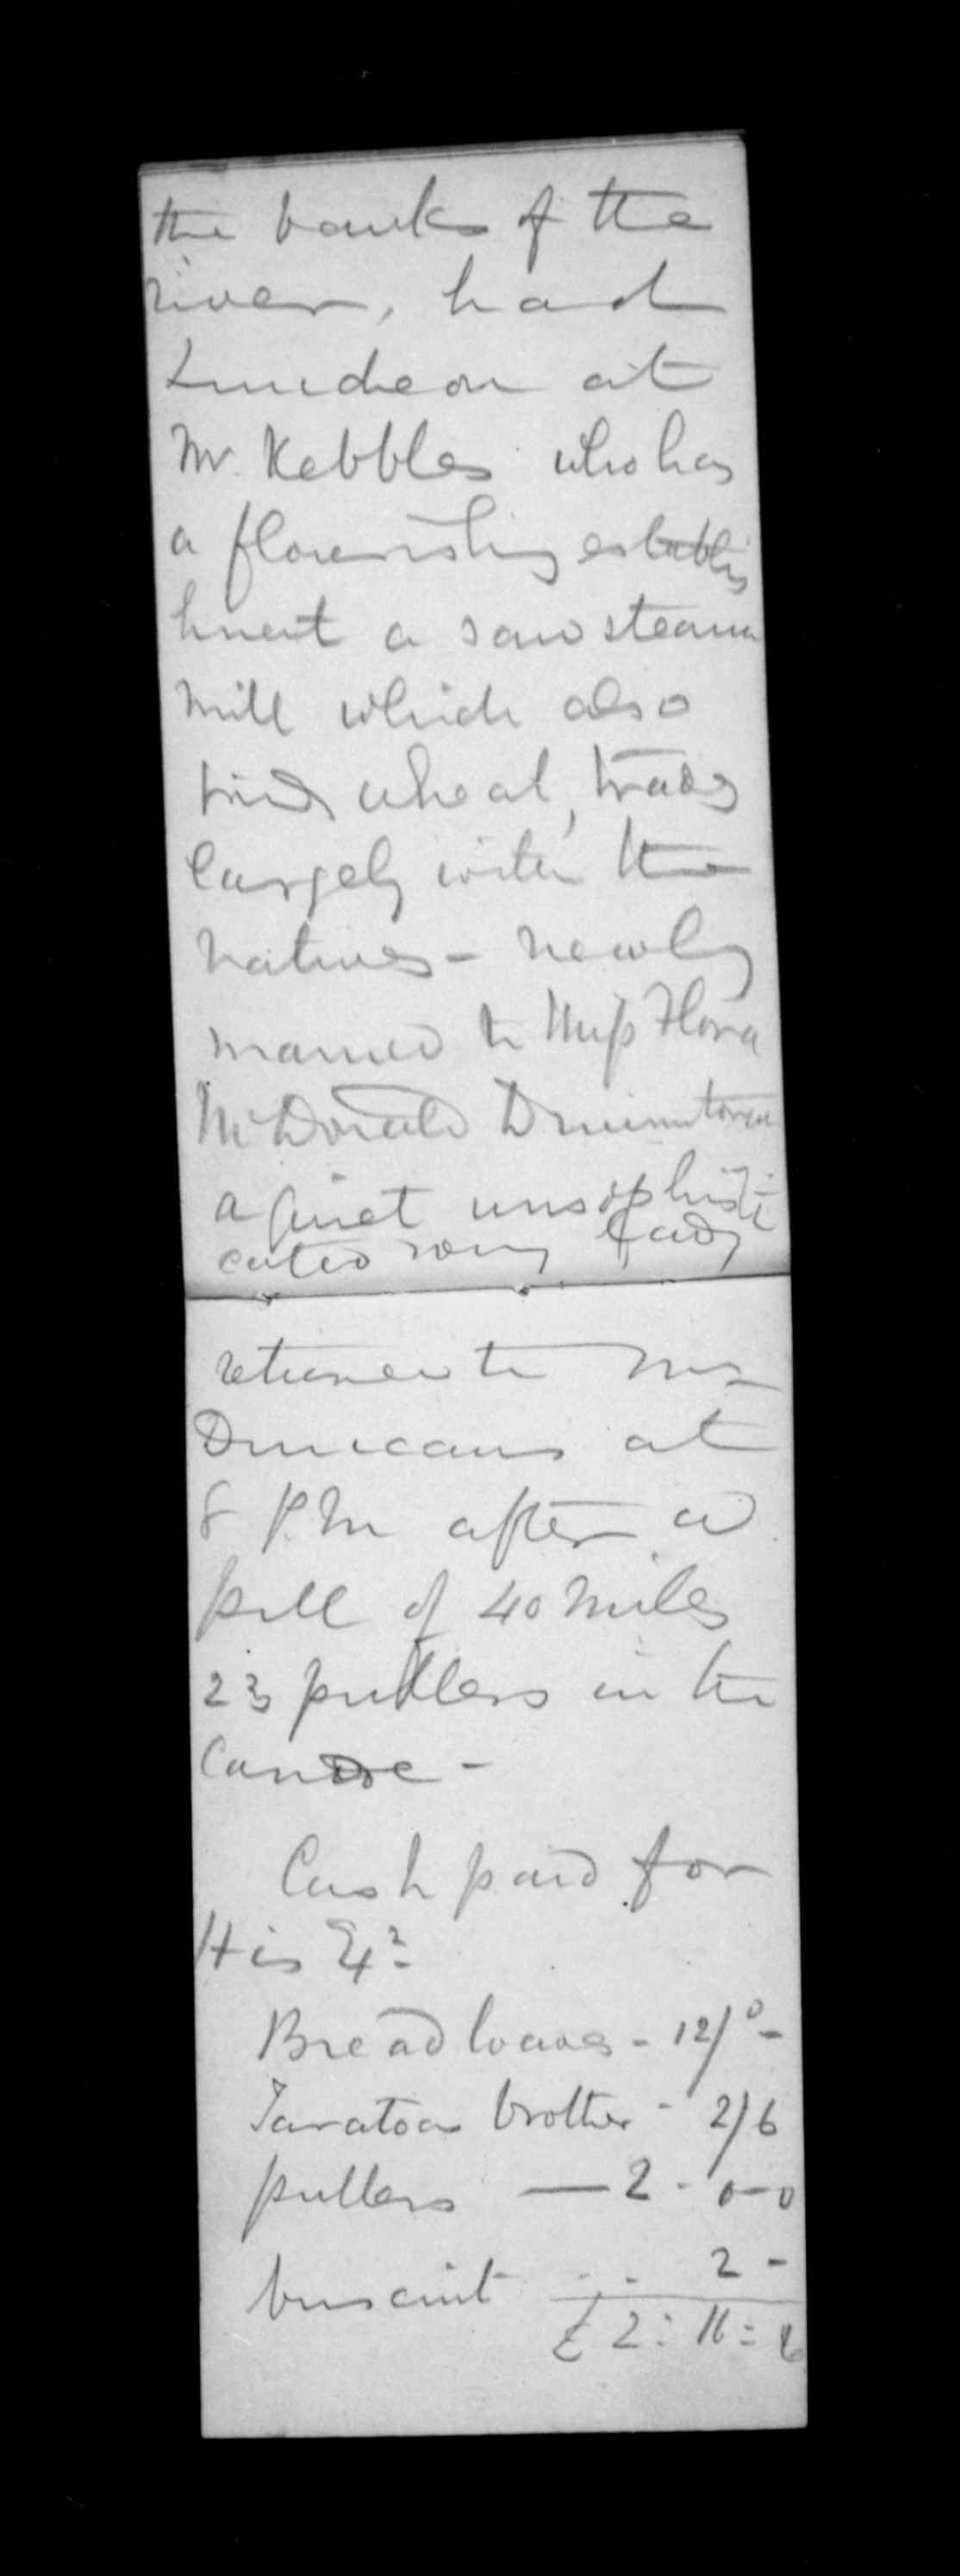 the banks of the
river, had
Luncheon at
Mr. Kebbles who has
a flourishing establis
hment a saw steam
mill which also
wheat, trades
largely with the
natives - newly
married to Miss Flora
McDonald
a quiet unsophisti
cated young Lady
returned to Mr
Duncans at
8 P.M after a
pull of 40 miles
23 pullers in the
Canoe -
Cash paid for
His Ey
Bread loaves - 12/0 -
Taratoas brother - 2/6
pullers — 2 - 0 - 0
buscuit .. 2 -
£ 2 : 11 : 6